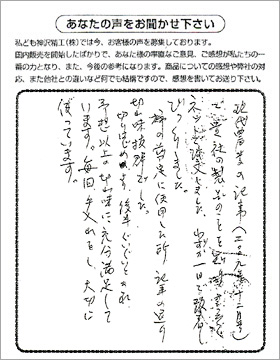 あなたの声をお聞かせ下さい
私ども神沢精工(株)では今、お客様の声を募集しております。
国内販売を開始したばかりで、あなた様の率直なご意見、ご感想が私たちの一
番の力となり、また、今後の参考になります。商品についての感想や弊社の対
応、また他社との違いなど何でも結構ですので、感想を書いてお送り下さい。
現代農業の記事(二〇〇九年十一月号)
で貴社の製品のことを
注文しました。わずか一日で
びっくりしました。
に使用した所 記事の通り
切れ味抜群でした。
切りはじめ 後半ぐいぐいときれ
予想以上の切れ味に充分満足して
います。毎回手入れをし、大切に
使っています。